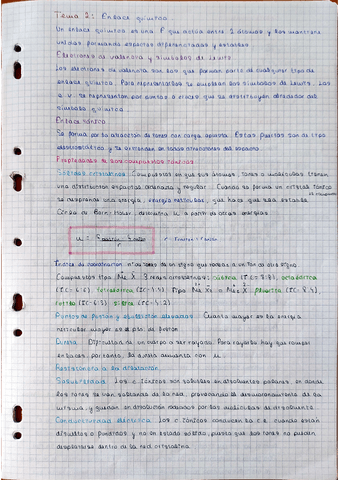 Tema 2: Enlace químico
Un enlace químico es una F que actúa entre 2 átomos y los mantiene
unidos formando especies diferenciadas y estables
Electrones de valencia y símbolos de Lewis
Los electrones de valencia son los que forman parte de cualquier tipo de
enlace químico. Para representarlos se emplean los símbolos de Lewis. Los
e⁻ v. se representan por puntos o cruces que se distribuyen alrededor del
símbolo químico.
Enlace iónico
Se forma por la atracción de iones con carga opuesta. Estas fuerzas son de tipo
electrostático y se extienden en todas direcciones del espacio.
Propiedades de los compuestos iónicos
Sólidos cristalinos: Compuestos en que sus átomos, iones o moléculas tienen
una distribución espacial ordenada y regular. Cuando se forma un cristal iónico
se desprende una energía, energía reticular, que hace que sea estable
Ciclo de Born-Haber, descubrir U a partir de otras energías
U =
Índice de coordinación: nº de iones de un signo que rodean a un ion de otro signo
Compuestos tipo 3 redes cristalinas: cúbica (IC=8:8), octaédrica
(IC=6:6), tetraédrica (IC=4:4) Tipo fluorita (IC=8:4),
rutilo (IC=6:3) sílice (IC=4:2)
Puntos de fusión y ebullición elevados: Cuanto mayor es la energía
reticular mayor es el pto. de fusión
Dureza: Dificultad de un cuerpo a ser rayado. Para rayarlos hay que romper
enlaces, por tanto, la dureza aumenta con U.
Resistencia a la dilatación
Solubilidad: Los c. iónicos son solubles en disolventes polares, en donde
los iones se van soltando de la red, provocando el desmoronamiento de la
misma, y quedan en disolución rodeados por las moléculas de disolvente.
Conductividad eléctrica: Los c. iónicos conducen la C.E. cuando están
disueltos o fundidos y no en estado sólido, puesto que los iones no pueden
desplazarse dentro de la red cristalina.